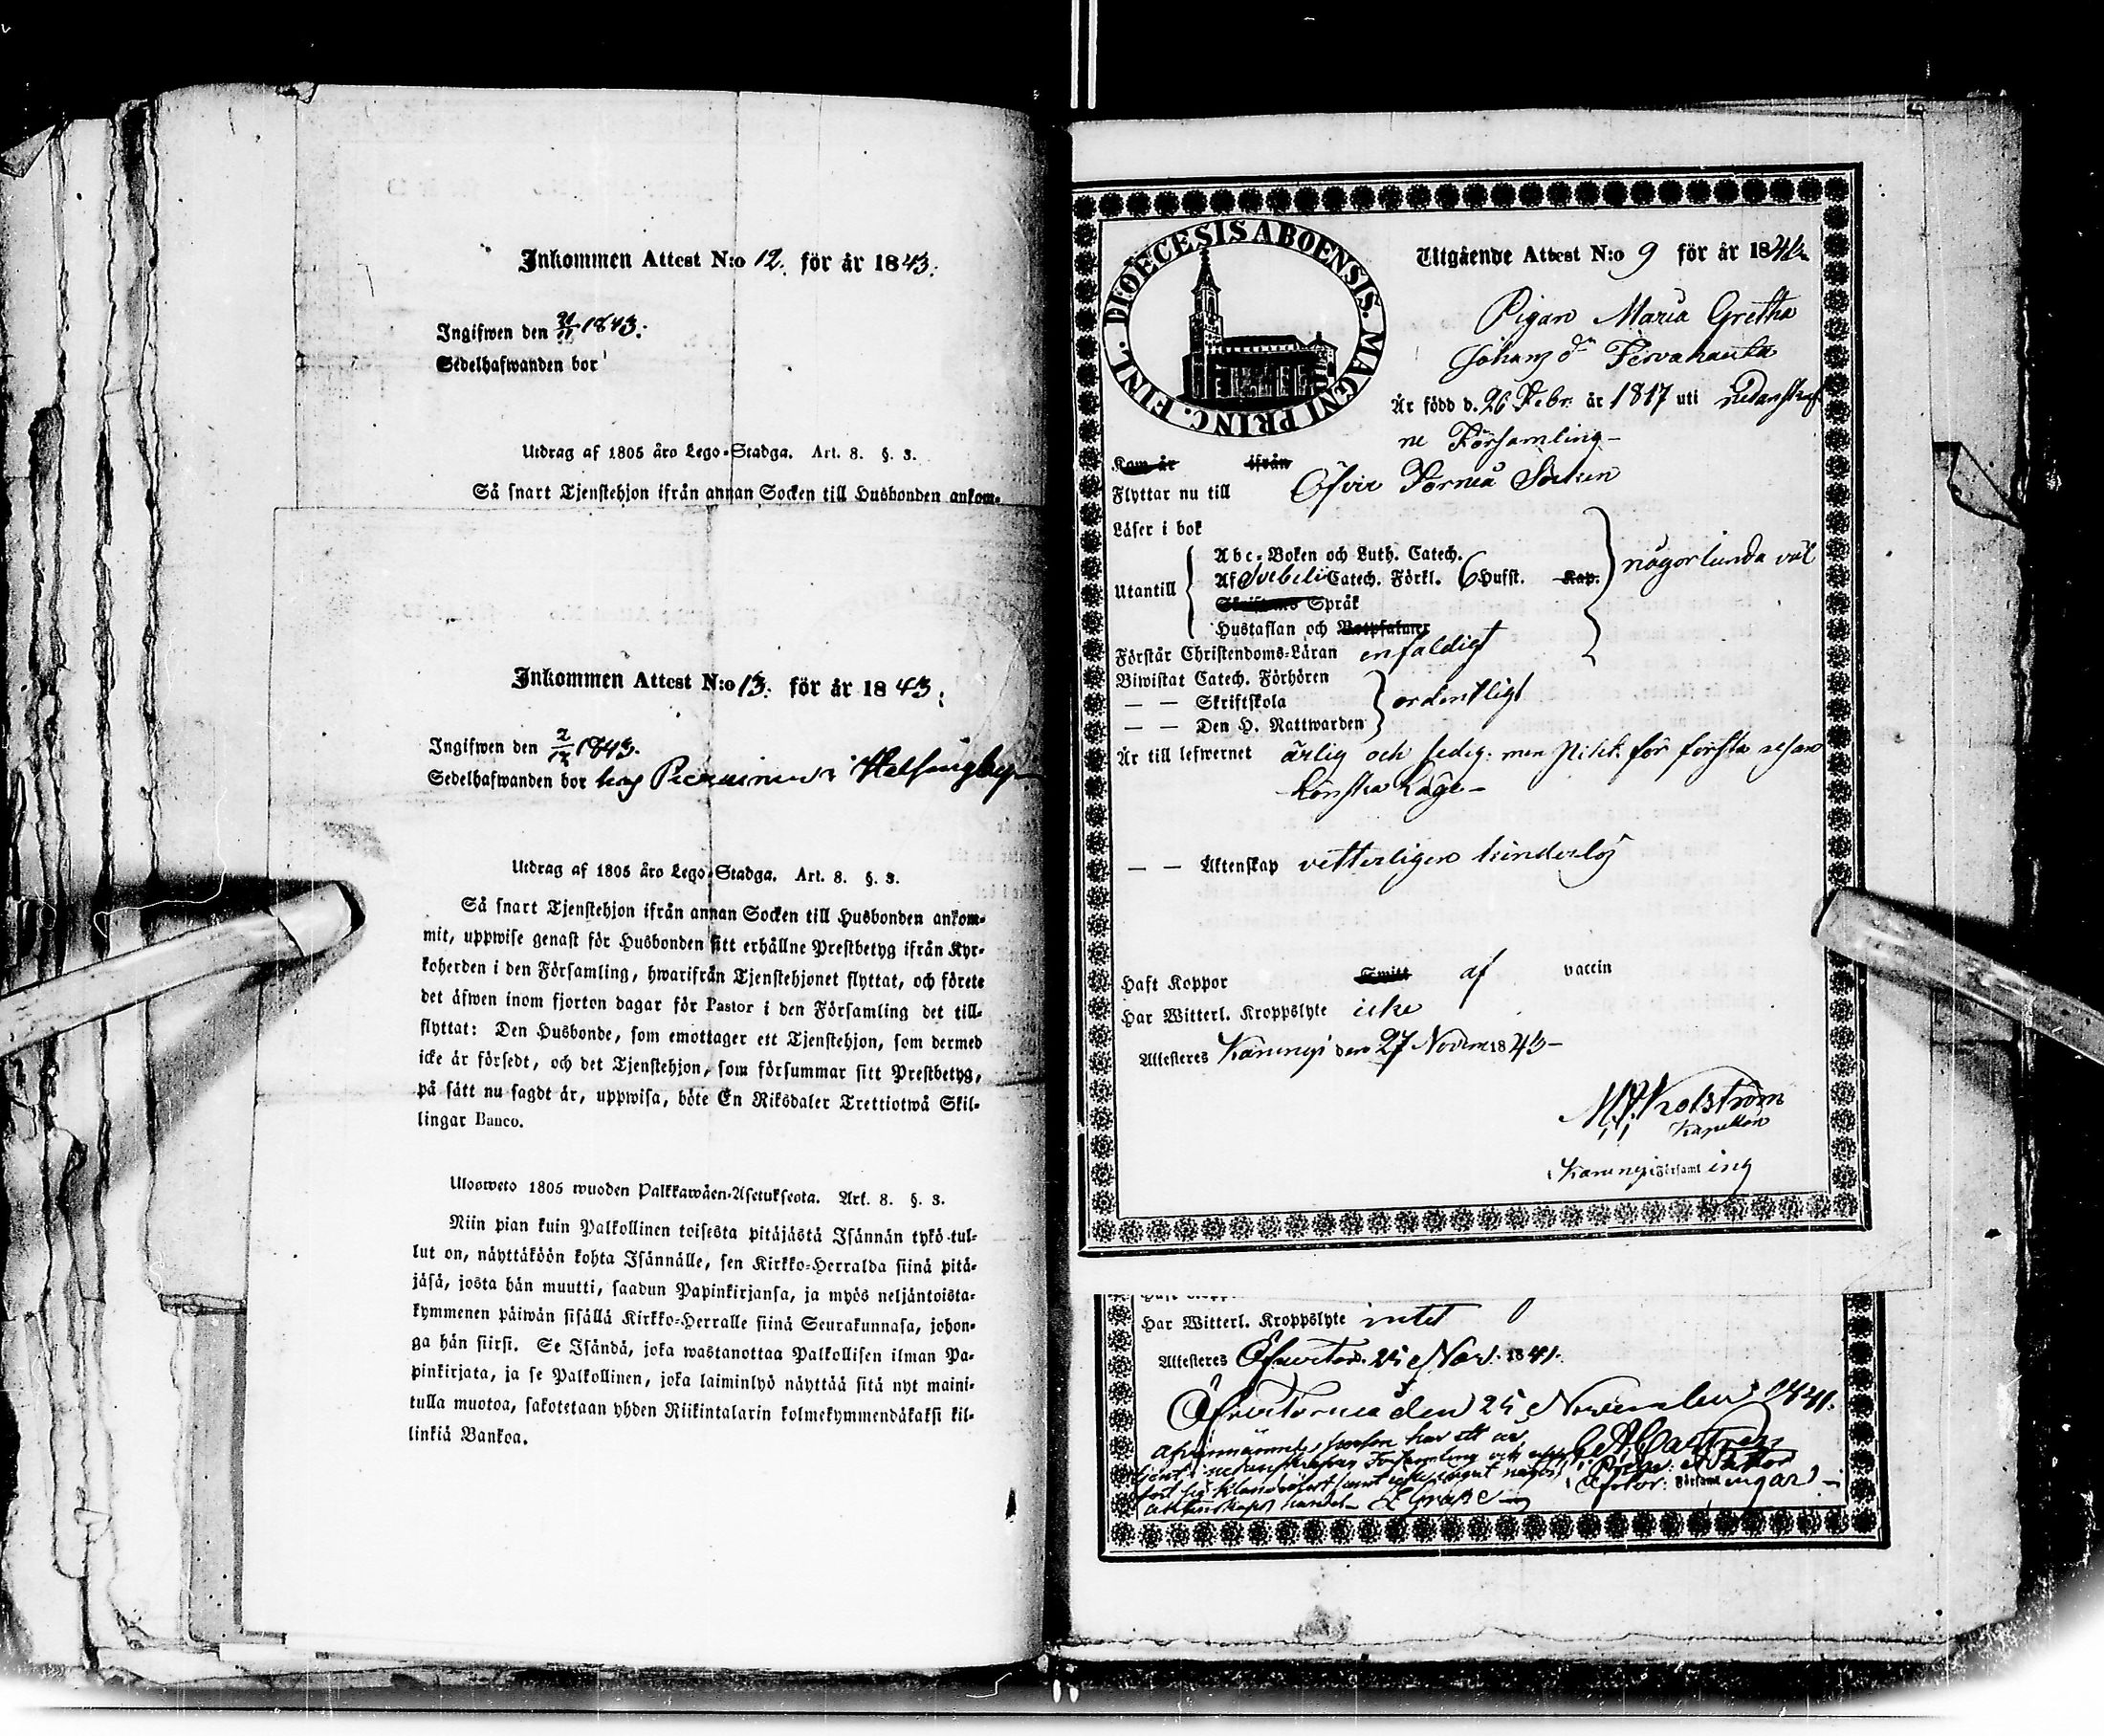 Inkommen Attest N:o 12. för år 1843.
Ingifwen den 21/11 1843.
Sedelhafwanden bor
Utdrag af 1805 års Lego-Stadga. Art. 8. §. 3.
Så snart Tjenstehjon ifrån annan Socken till Husbonden ankom-
Inkommen Attest N:o 13. för år 1843.
Ingifwen den 2/12 1843.
Sedelhafwanden bor hos
Utdrag af 1805 års Lego-Stadga. Art. 8. §. 3.
Så snart Tjenstehjon ifrån annan Socken till Husbonden ankom-
mit, uppwise genast för Husbonden sitt erhållne Prestbetyg ifrån Kyr-
koherden i den Församling, hwarifrån Tjenstehjonet flyttat, och förete
det äfwen inom fjorton dagar för Pastor i den Församling det till-
flyttat: Den Husbonde, som emottager ett Tjenstehjon, som dermed
icke är försedt, och det Tjenstehjon, som försummar sitt Prestbetyg,
på sätt nu sagdt är, uppwisa, böte En Riksdaler Trettiotwå Skil-
lingar Banco.
Ulosweto 1805 wuoden Palkkawäen-Asetuksesta. Art. 8. §. 3.
Niin pian kuin Palkollinen toisesta pitäjästä Isännän tykö tul-
lut on, näyttäköön kohta Isännälle, sen Kirkko-Herralda siinä pitä-
jäsä, josta hän muutti, saadun Papinkirjansa, ja myös neljäntoista-
kymmenen päiwän sisällä Kirkko-Herralle siinä Seurakunnasa, johon-
ga hän siirsi. Se Isändä, joka wastanottaa Palkollisen ilman Pa-
pinkirjata, ja se Palkollinen, joka laiminlyö näyttää sitä nyt maini-
tulla muotoa, sakotetaan yhden Riikintalarin kolmekymmendäkaksi kil-
linkiä Bankoa.
DIOECESIS ABOENSIS. MAGNI PRINC. FINL.
Utgående Attest N:o 9 för år 184
Pigan Maria Gretha
Johansdr
Är född d. 26 Febr. år 1817 uti
ne Församling
Kom år ifrån
Flyttar nu till Öfver Torneå Socken
Läser i bok
Utantill
Abc-Boken och Luth. Catech.
Af Svebeli Catech. Förkl. 6 Hufst. Kap.
någorlunda väl
Skriftens Språk
Hustaflan och Botpsalmer
Förstår Christendoms-Läran enfaldigt
Biwistat Catech. Förhören
— — Skriftskola
ordentligt
— — Den H. Nattwarden
Är till lefwernet ärlig och sedig: men för första resan
— — Äktenskap vetterligen hinderlös
Haft Koppor Smitt af vaccin
Har Witterl. Kroppslyte icke
Attesteres Karungi den 27 Novem 1843
Kapellan
Karungi Församling
Har Witterl. Kroppslyte intet
Attesteres Öfvertor. 25 Nov. 1841.
Öfvertorneå den 25 November 1841.